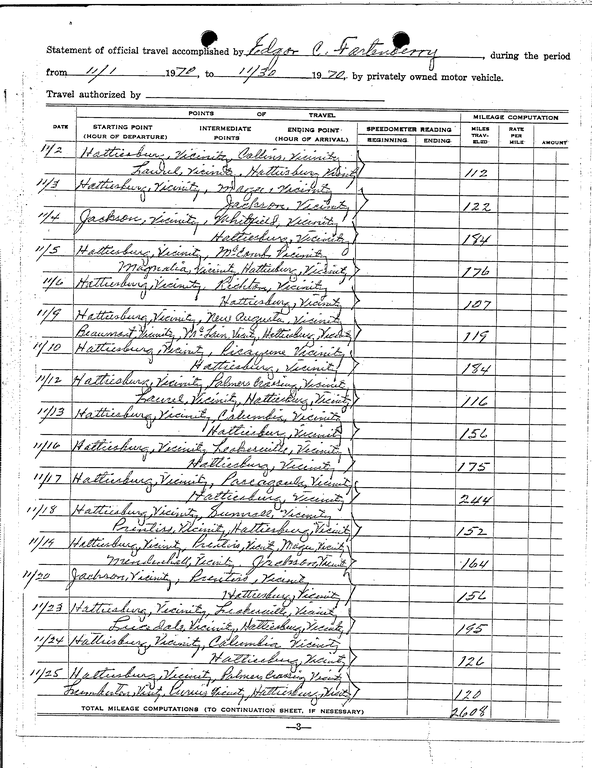 Statement of official travel accomplished by Edgar C. Fortenberry, during the period
from 11/1 1970, to 11/30 1970, by privately owned motor vehicle.
Travel authorized by
POINTS OF TRAVEL MILEAGE COMPUTATION
DATE STARTING POINT (HOUR OF DEPARTURE) INTERMEDIATE POINTS ENDING POINT (HOUR OF ARRIVAL) SPEEDOMETER READING BEGINNING ENDING MILES TRAVELED RATE PER MILE AMOUNT
11/2 Hattiesburg, Vicinity, Collins, Vicinity
Laurel, Vicinity, Hattiesburg, Vicinity 112
11/3 Hattiesburg, Vicinity, Magee, Vicinity
Jackson, Vicinity 122
11/4 Jackson, Vicinity, Whitfield, Vicinity
Hattiesburg, Vicinity 184
11/5 Hattiesburg, Vicinity, McComb, Vicinity
Magnolia, Vicinity, Hattiesburg, Vicinity 176
11/6 Hattiesburg, Vicinity, Richton, Vicinity
Hattiesburg, Vicinity 107
11/9 Hattiesburg, Vicinity, New Augusta, Vicinity
Beaumont, Vicinity, McLain, Vicinity, Hattiesburg, Vicinity 119
11/10 Hattiesburg, Vicinity, Picayune Vicinity
Hattiesburg, Vicinity 184
11/12 Hattiesburg, Vicinity, Palmers Crossing, Vicinity
Laurel, Vicinity, Hattiesburg, Vicinity 116
11/13 Hattiesburg, Vicinity, Columbia, Vicinity
Hattiesburg, Vicinity 156
11/16 Hattiesburg, Vicinity, Leakesville, Vicinity
Hattiesburg, Vicinity 175
11/17 Hattiesburg, Vicinity, Pascagoula, Vicinity
Hattiesburg, Vicinity 244
11/18 Hattiesburg, Vicinity, Sumrall, Vicinity
Prentiss, Vicinity, Hattiesburg, Vicinity 152
11/19 Hattiesburg, Vicinity, Prentiss, Vicinity, Magee, Vicinity
Mendenhall, Vicinity, Jackson, Vicinity 164
11/20 Jackson, Vicinity, Prentiss, Vicinity
Hattiesburg, Vicinity 156
11/23 Hattiesburg, Vicinity, Leakesville, Vicinity
Lucedale, Vicinity, Hattiesburg, Vicinity 195
11/24 Hattiesburg, Vicinity, Columbia Vicinity
Hattiesburg, Vicinity 126
11/25 Hattiesburg, Vicinity, Palmers Crossing, Vicinity
Lumberton, Vicinity, Purvis Vicinity, Hattiesburg, Vicinity 120
TOTAL MILEAGE COMPUTATIONS (TO CONTINUATION SHEET, IF NESESSARY) 2608
—3—